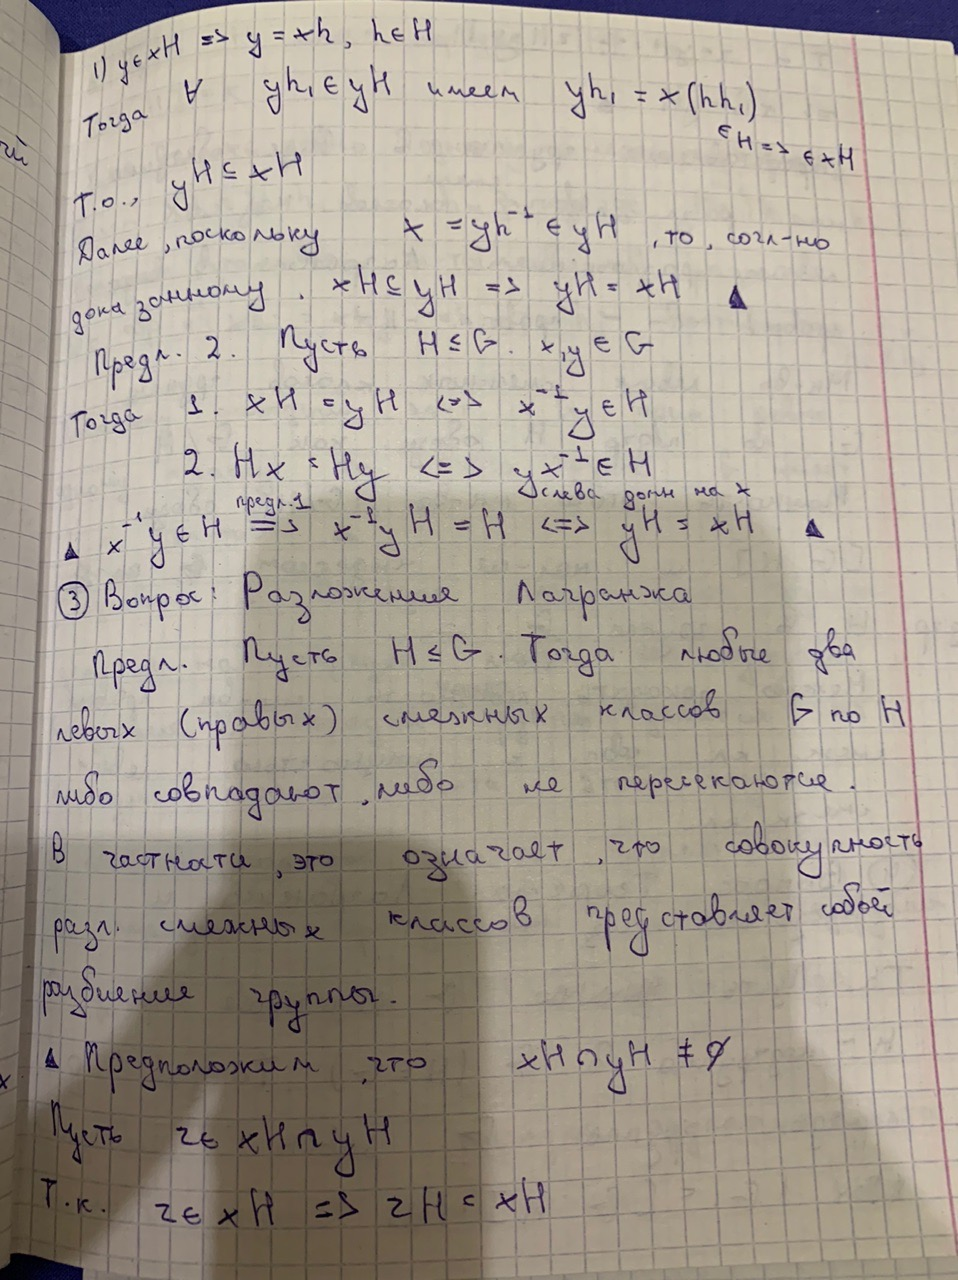 1) y∈xH => y = xh, h∈H
Тогда ∀ yh₁ ∈ yH имеем yh₁ = x(hh₁)
∈H => ∈ xH
Т.о., yH ⊆ xH
Далее, поскольку x = yh⁻¹ ∈ yH, то, согл-но
доказанному, xH ⊆ yH => yH = xH ▲
Предл. 2. Пусть H ≤ G. x,y ∈ G
Тогда 1. xH = yH <=> x⁻¹y ∈ H
2. Hx = Hy <=> yx⁻¹ ∈ H
предл.1 слева домн на x
▲ x⁻¹y ∈ H => x⁻¹yH = H <=> yH = xH ▲
③ Вопрос: Разложения Лагранжа
Предл. Пусть H ≤ G. Тогда любые два
левых (правых) смежных классов G по H
либо совпадают, либо не пересекаются.
В частности, это означает, что совокупность
разл. смежных классов представляет собой
разбиение группы.
▲ Предположим, что xH ∩ yH ≠ ∅
Пусть z ∈ xH ∩ yH
Т.к. z ∈ xH => zH = xH